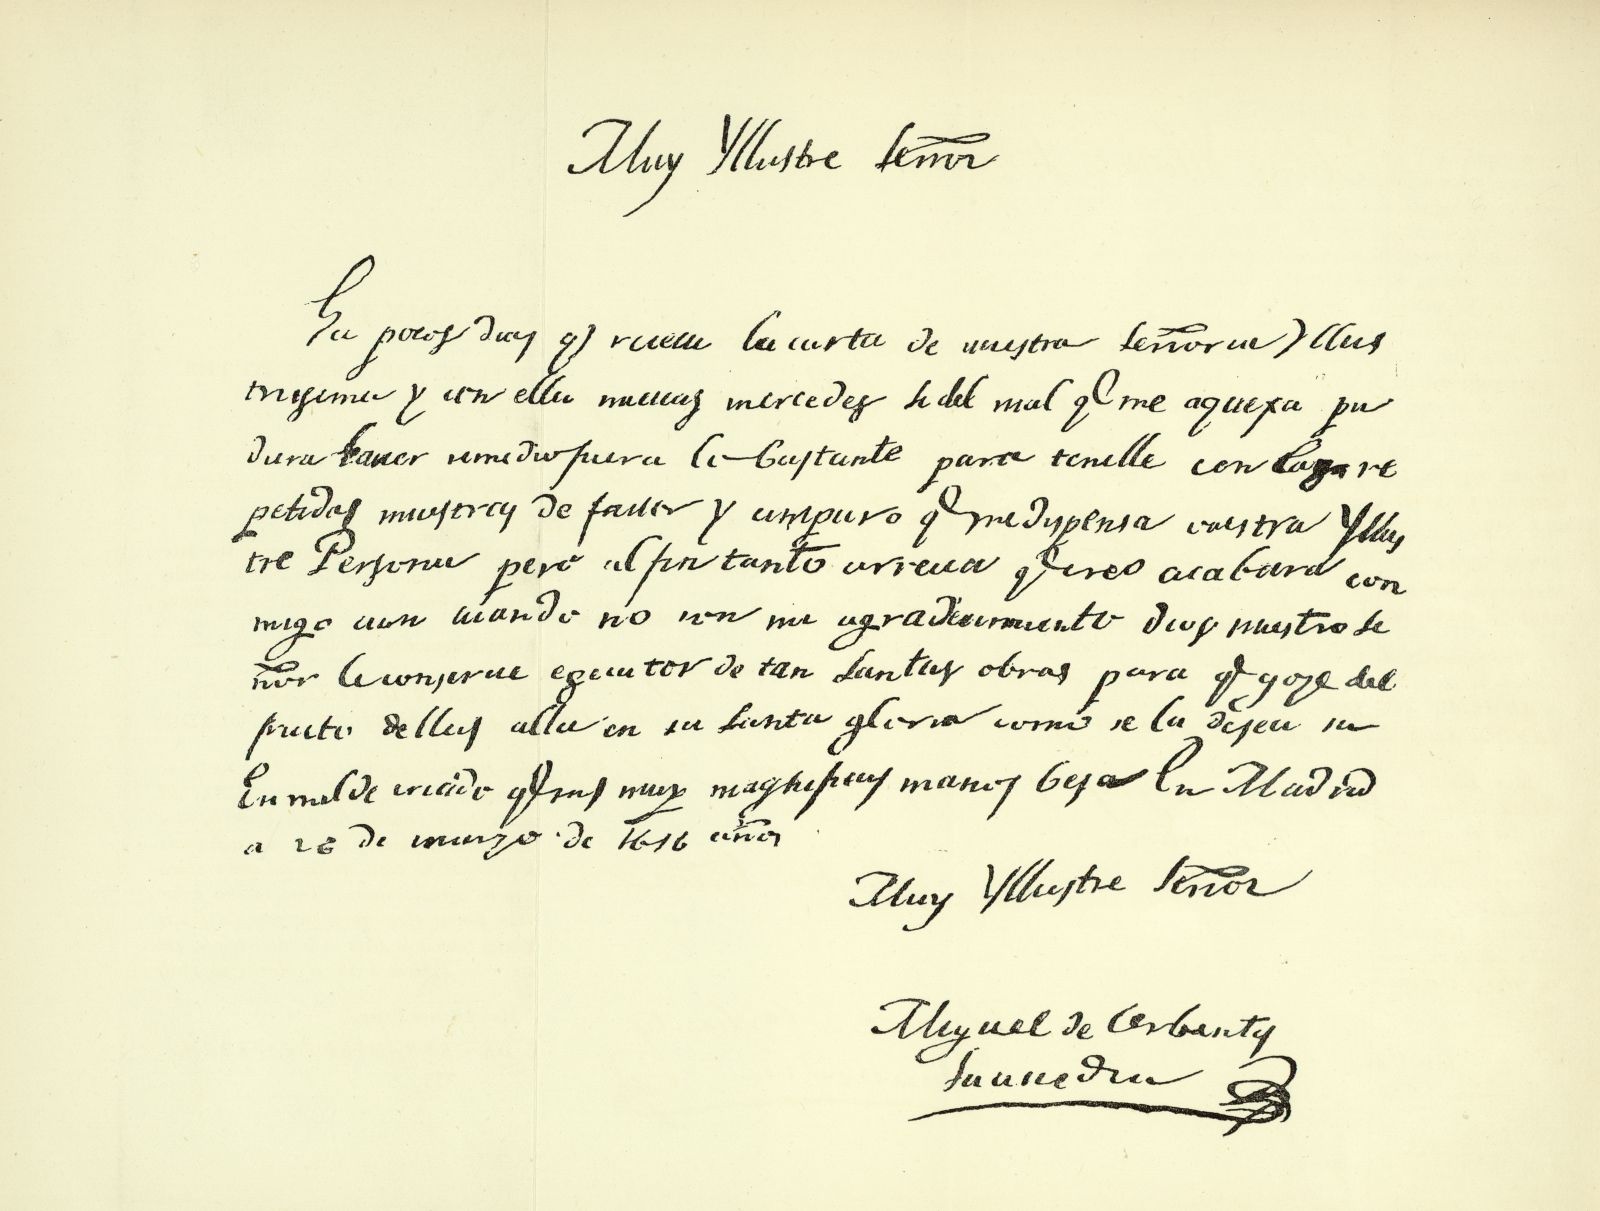 Muy Yllustre Señor
Ha pocos dias q̃ reciui la carta de vuestra Señoria Yllus
trisima y con ella nueuas mercedes si del mal q̃ me aquexa pu
diera hauer remedio fuera lo bastante para tenelle con las re
petidas muestras de fauor y amparo q̃ me dispensa vuestra Yllus
tre Persona pero al fin tanto arrecia q̃ creo acabara con
migo aun cuando no con mi agradecimiento dios nuestro Se
ñor le conserue egecutor de tan santas obras para q̃ goze del
fruto dellas alla en su santa gloria como se la desea su
humilde criado q̃ sus muy magnificas manos besa En Madrid
a 26 de marzo de 1616 años
Muy Yllustre Señor
Miguel de Cerbantes
Saauedra